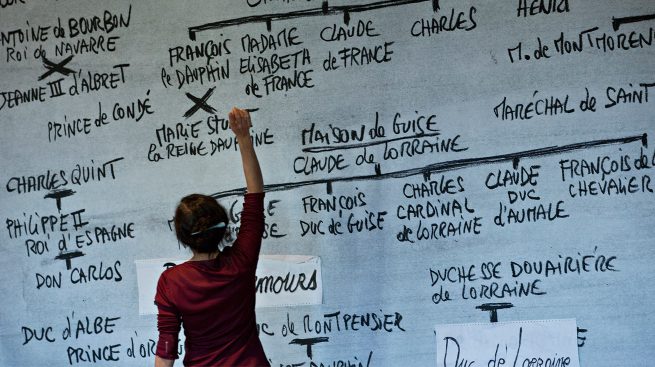 ANTOINE de BOURBON
Roi de NAVARRE
JEANNE III d'ALBRET
PRINCE de CONDÉ
FRANÇOIS
le DAUPHIN
MADAME
ELISABETH
de FRANCE
CLAUDE
de FRANCE
CHARLES
HENRI
M. de MONTMOREN
MARÉCHAL de SAINT
MARIE STU
la REINE DAUPHINE
MAISON de GUISE
CLAUDE de LORRAINE
CHARLES QUINT
PHILIPPE II
ROI d'ESPAGNE
DON CARLOS
FRANÇOIS
DUC de GUISE
CHARLES
CARDINAL
de LORRAINE
CLAUDE
DUC
d'AUMALE
FRANÇOIS de
CHEVALIER
DUC d'ALBE
PRINCE d'OR
EMOURS
DUCHESSE DOUAIRIÈRE
de LORRAINE
de MONTPENSIER
DAUPHIN
Duc de Lorraine